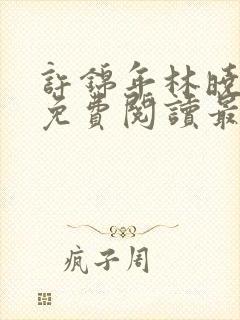 許錦年林曉
免費閱讀最
疯子周